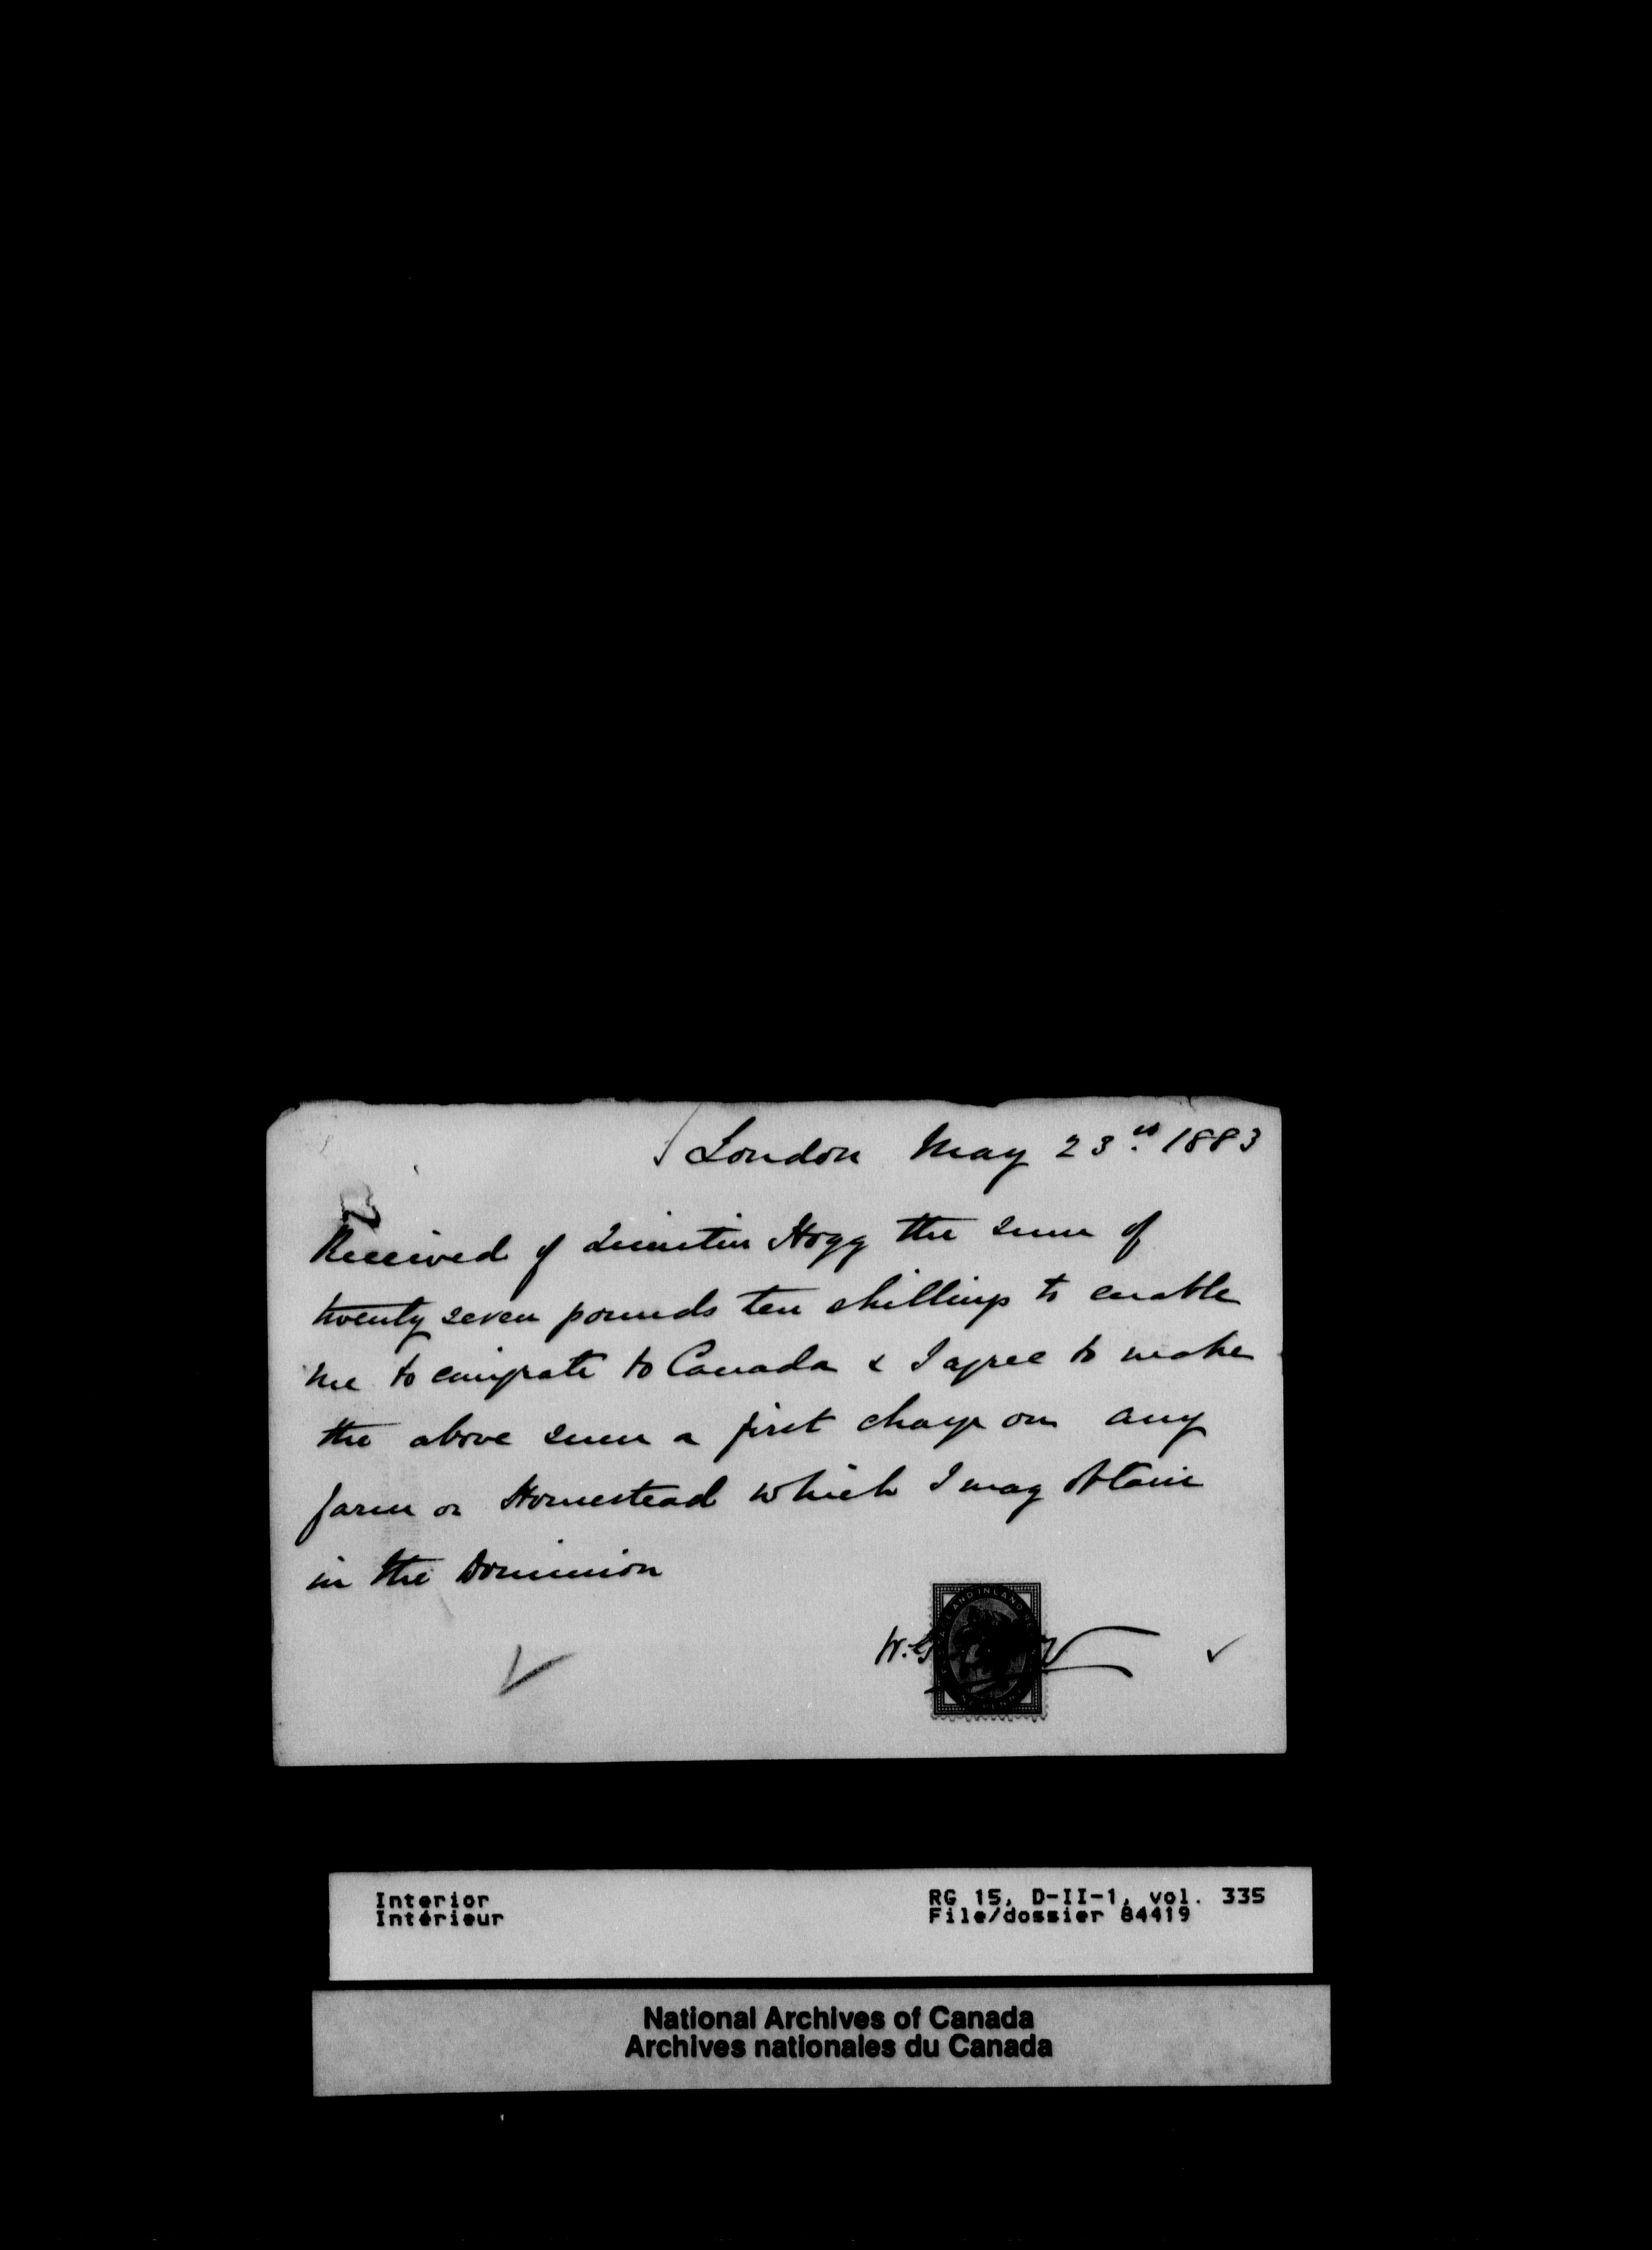 London May 23rd 1883
Received of Quintin Hogg the sum of
twenty seven pounds ten shillings to enable
me to emigrate to Canada & I agree to make
the above sum a first charge on any
farm or Homestead which I may obtain
in the Dominion
INLAND
W. G
Interior
Intérieur
RG 15, D-II-1, vol. 335
File/dossier 84419
National Archives of Canada
Archives nationales du Canada